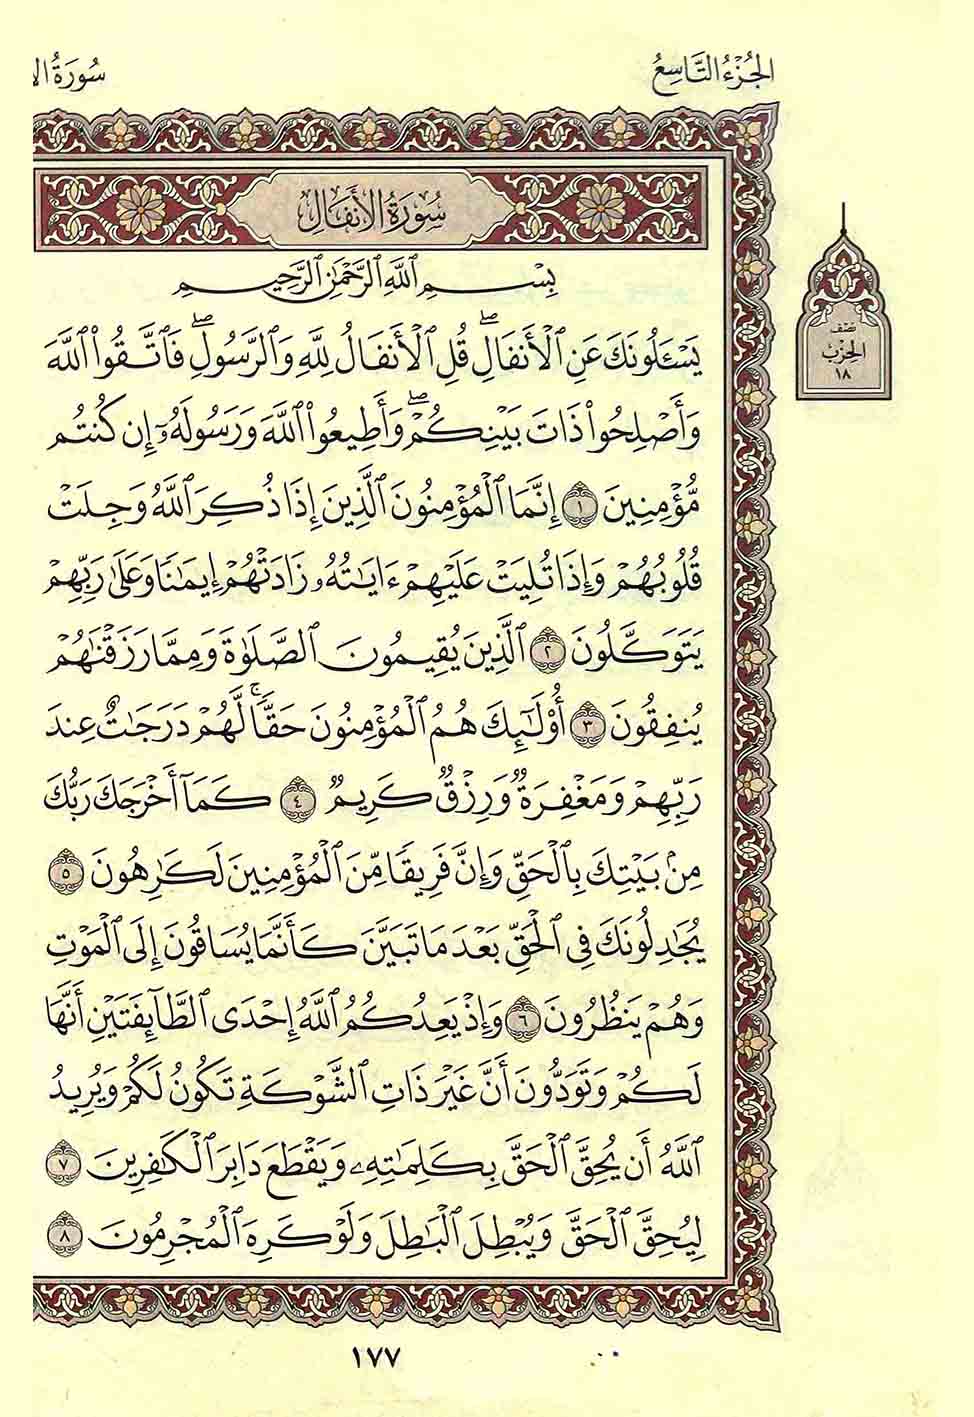 الجُزْءُ التَّاسِعُ
سُورَةُ
سُورَةُ الأَنفَالِ
بِسْمِ ٱللَّهِ ٱلرَّحْمَٰنِ ٱلرَّحِيمِ
يَسْـَٔلُونَكَ عَنِ ٱلْأَنفَالِۖ قُلِ ٱلْأَنفَالُ لِلَّهِ وَٱلرَّسُولِۖ فَٱتَّقُوا۟ ٱللَّهَ
وَأَصْلِحُوا۟ ذَاتَ بَيْنِكُمْۖ وَأَطِيعُوا۟ ٱللَّهَ وَرَسُولَهُۥٓ إِن كُنتُم
مُّؤْمِنِينَ ١ إِنَّمَا ٱلْمُؤْمِنُونَ ٱلَّذِينَ إِذَا ذُكِرَ ٱللَّهُ وَجِلَتْ
قُلُوبُهُمْ وَإِذَا تُلِيَتْ عَلَيْهِمْ ءَايَٰتُهُۥ زَادَتْهُمْ إِيمَٰنًا وَعَلَىٰ رَبِّهِمْ
يَتَوَكَّلُونَ ٢ ٱلَّذِينَ يُقِيمُونَ ٱلصَّلَوٰةَ وَمِمَّا رَزَقْنَٰهُمْ
يُنفِقُونَ ٣ أُو۟لَٰٓئِكَ هُمُ ٱلْمُؤْمِنُونَ حَقًّاۚ لَّهُمْ دَرَجَٰتٌ عِندَ
رَبِّهِمْ وَمَغْفِرَةٌ وَرِزْقٌ كَرِيمٌ ٤ كَمَآ أَخْرَجَكَ رَبُّكَ
مِنۢ بَيْتِكَ بِٱلْحَقِّ وَإِنَّ فَرِيقًا مِّنَ ٱلْمُؤْمِنِينَ لَكَٰرِهُونَ ٥
يُجَٰدِلُونَكَ فِى ٱلْحَقِّ بَعْدَ مَا تَبَيَّنَ كَأَنَّمَا يُسَاقُونَ إِلَى ٱلْمَوْتِ
وَهُمْ يَنظُرُونَ ٦ وَإِذْ يَعِدُكُمُ ٱللَّهُ إِحْدَى ٱلطَّآئِفَتَيْنِ أَنَّهَا
لَكُمْ وَتَوَدُّونَ أَنَّ غَيْرَ ذَاتِ ٱلشَّوْكَةِ تَكُونُ لَكُمْ وَيُرِيدُ
ٱللَّهُ أَن يُحِقَّ ٱلْحَقَّ بِكَلِمَٰتِهِۦ وَيَقْطَعَ دَابِرَ ٱلْكَٰفِرِينَ ٧
لِيُحِقَّ ٱلْحَقَّ وَيُبْطِلَ ٱلْبَٰطِلَ وَلَوْ كَرِهَ ٱلْمُجْرِمُونَ ٨
نِصْف
الحِزْبِ
١٨
١٧٧